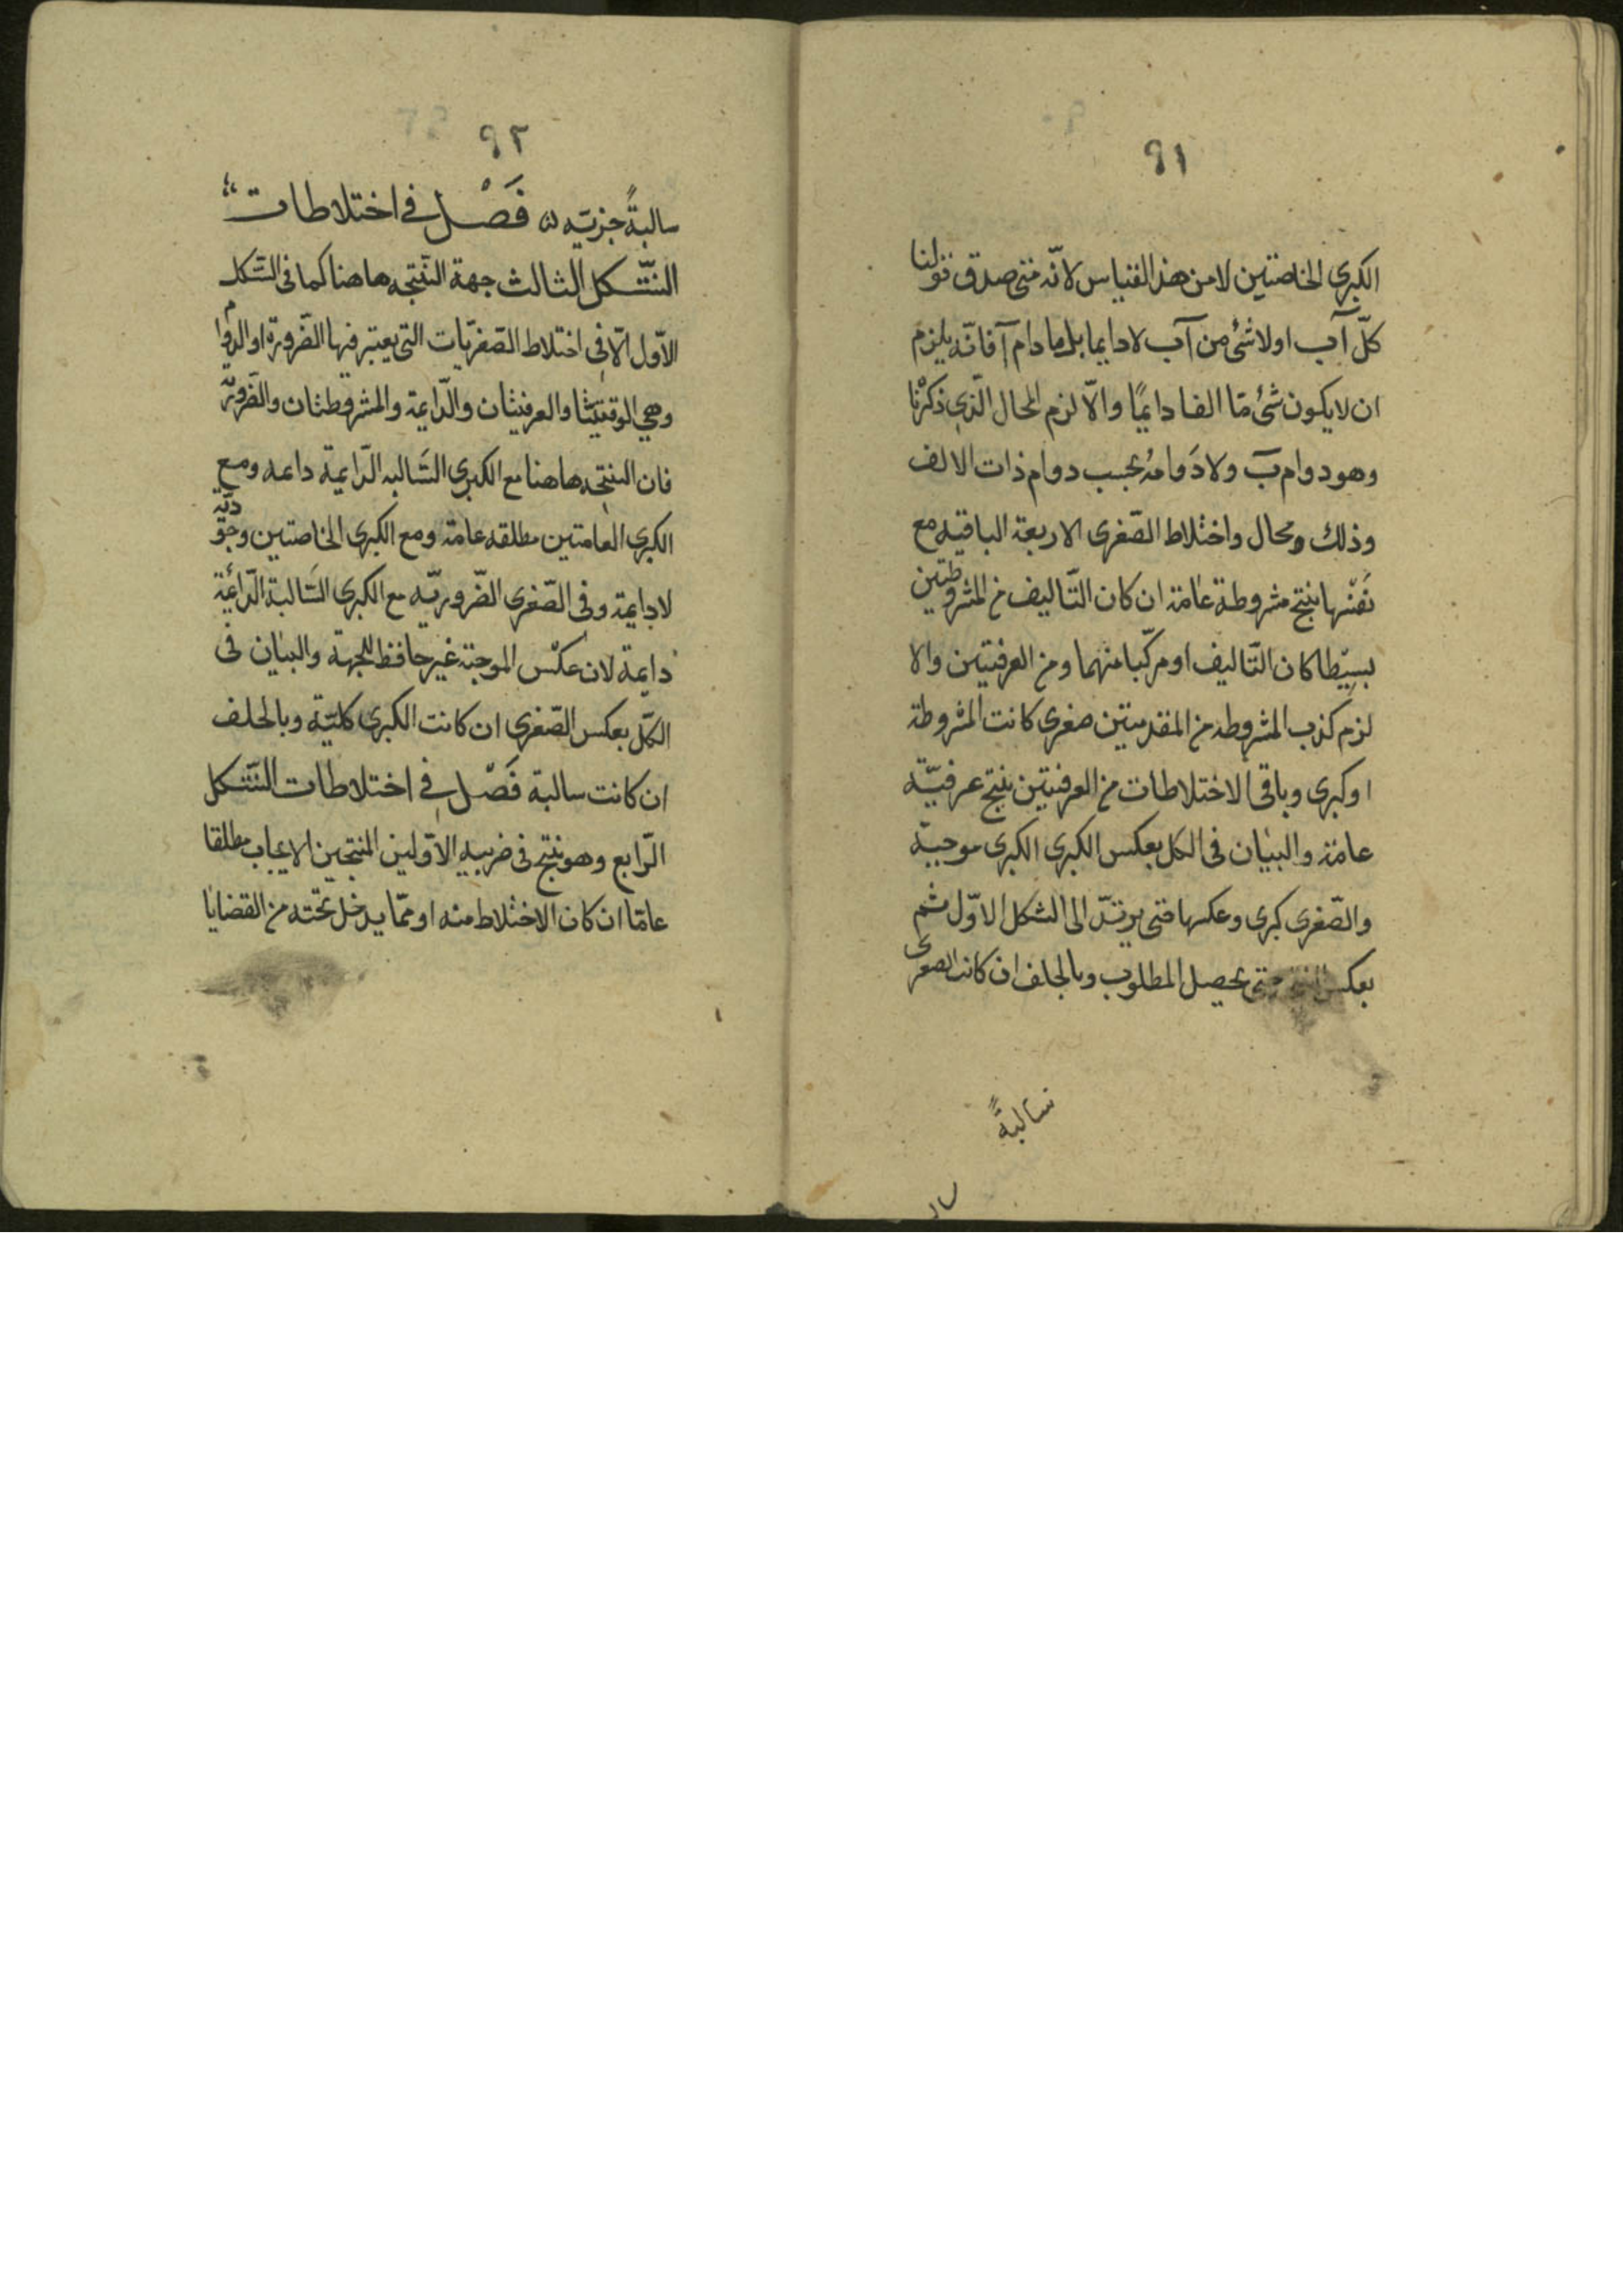 ٩١
الكبرى الخاصتين لا من هذ القياس لانّه متى صدق قولنا
كلّ آب او لا شئ من آب لا دايما بل ما دام آ فانّه يلزم
ان لا يكون شئ مّا الفا دايمًا والّا لزم المحال الّذى ذكرنا
وهو دوام بَ ولا دَوامهُ بحسب دوام ذات الالف
وذلك ومحال واختلاط الصّغرى الاربعة الباقيه مع
نفسها ينتج مشروطة عامة ان كان التّاليف من المشروطتين
بسيطا كان التّاليف او مركّبا منهما ومن العرفيتين والا
لزم كذب المشروطه من المقدمتين صغرى كانت المشروطة
او كبرى وباقى الاختلاطات من العرفيتين ينتج عرفيّة
عامة والبيان فى الكل بعكس الكبرى الكبرى موجبة
والصّغرى كبرى وعكسها حتى يرتدّ الى الشكل الاوّل ثم
بعكس النتيجه حتى يحصل المطلوب وبالخلف ان كانت الصغرى
سالبةً
٩٢
سالبةً جزيّه فَصْل فى اختلاطات
الشّكل الثالث جهة النّتيجه هاهنا كما فى الشّكل
الاوّل الّا فى اختلاط الصّغريّات التى يعتبر فيها الضّرورة او الدوام
وهى الوقتيتا والعرفيتان والدّايمة والمشروطتان والضّروريّة
فان النتيجه هاهنا مع الكبرى السّالبه الدّايمة دايمه ومع
الكبرى العامتين مطلقه عامة ومع الكبرى الخاصتين وجوديّة
لا دايمة وفى الصّغرى الضّروريّه مع الكبرى السّالبة الدّائمة
دايمة لان عكس الموجبة غير حافظ للجهة والبيان فى
الكلّ بعكس الصّغرى ان كانت الكبرى كليّة وبالخلف
ان كانت سالبة فَصْل فى اختلاطات الشّكل
الرّابع وهو ينتج فى ضربيه الاوّلين المنتجين الايجاب مطلقا
عامّا ان كان الاختلاط منه او ممّا يدخل تحته من القضايا